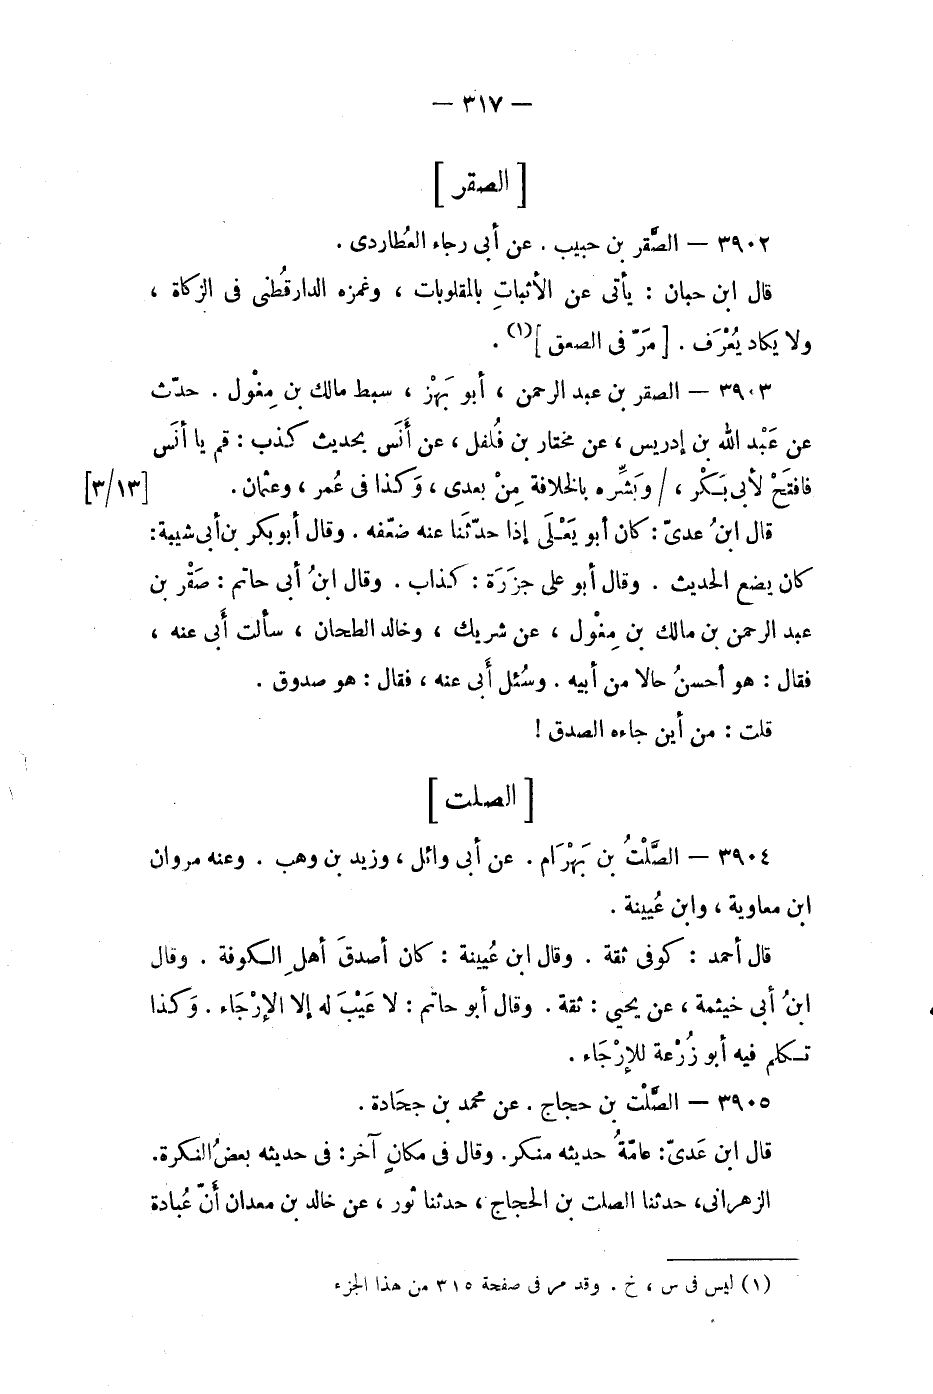 — ٣١٧ —
[ الصقر ]
٣٩٠٢ — الصَّقر بن حبيب . عن أبى رجاء العُطاردى .
قال ابن حبان : يأتى عن الأثباتِ بالمقلوبات ، وغمزه الدارقُطنى فى الزكاة ،
ولا يكاد يُعْرَف . [ مَرّ فى الصعق ](١) .
٣٩٠٣ — الصقر بن عبد الرحمن ، أبو بَهْز ، سبط مالك بن مِغْول . حدّث
عن عَبْد الله بن إدريس ، عن مختار بن فُلفل ، عن أَنَس بحديث كذب : قم يا أنَس
فافتَحْ لأبى بَكْر ، / وبَشِّره بالخلافة مِنْ بعدى ، وَكذا فى عُمر ، وعثمان . [٣/١٣]
قال ابنُ عدىّ : كان أبو يَعْلَى إذا حدّثَنا عنه ضعّفه . وقال أبوبكر بن أبى شيبة :
كان يضع الحديث . وقال أبو على جزَرَة : كذاب . وقال ابنُ أبى حاتم : صَقْر بن
عبد الرحمن بن مالك بن مِغْول ، عن شريك ، وخالد الطحان ، سألت أَبى عنه ،
فقال : هو أحسنُ حالا من أبيه . وسُئل أَبى عنه ، فقال : هو صدوق .
قلت : من أين جاءه الصدق !
[ الصلت ]
٣٩٠٤ — الصَّلْتُ بن بَهْرَام . عن أبى وائل ، وزيد بن وهب . وعنه مروان
ابن معاوية ، وابن عُيينة .
قال أحمد : كوفى ثقة . وقال ابن عُيينة : كان أصدقَ أهلِ الكوفة . وقال
ابنُ أبى خيثمة ، عن يحيى : ثقة . وقال أبو حاتم : لا عَيْبَ له إلا الإرْجَاء . وَكذا
تكلم فيه أبو زُرْعة للإرْجَاء .
٣٩٠٥ — الصَّلْت بن حجاج . عن محمد بن جحَادة .
قال ابن عَدىّ : عامّةُ حديثه منكر. وقال فى مكانٍ آخر: فى حديثه بعضُ النكرة.
الزهرانى، حدثنا الصلت بن الحجاج ، حدثنا ثور ، عن خالد بن معدان أَنّ عُبادة
(١) ليس فى س ، خ . وقد مر فى صفحة ٣١٥ من هذا الجزء